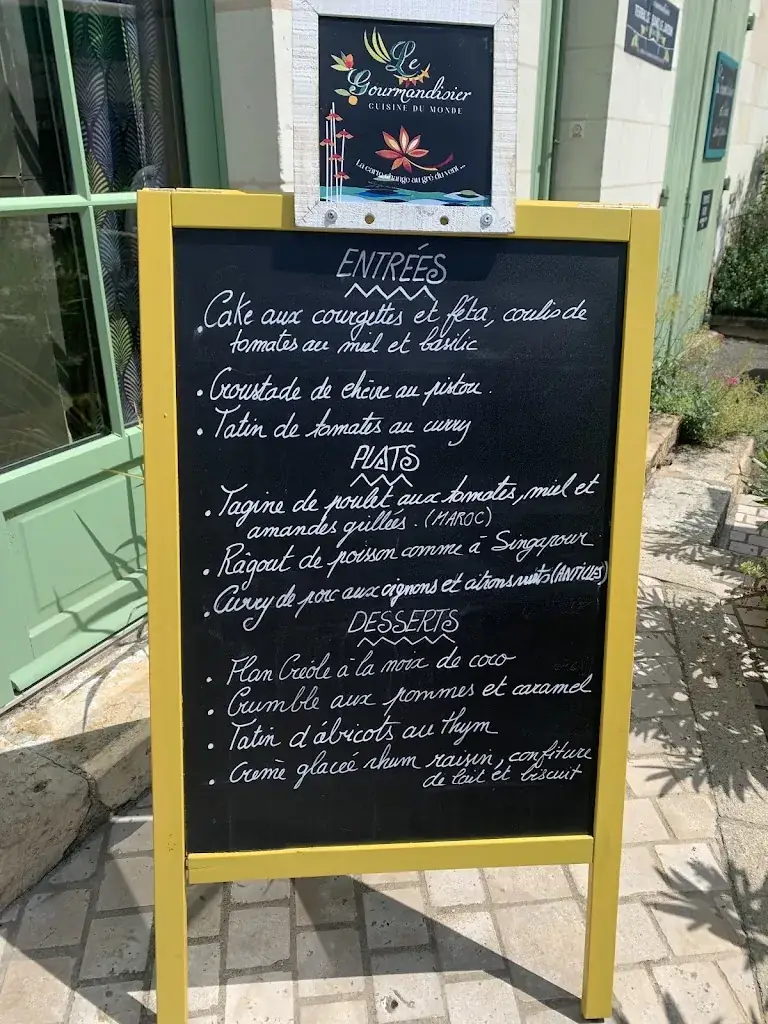 Le
Gourmandisier
CUISINE DU MONDE
La carte change au gré du vent...
ENTRÉES
. Cake aux courgettes et féta, coulis de
tomates au miel et basilic
. Croustade de chèvre au pistou.
. Tatin de tomates au curry
PLATS
. Tagine de poulet aux tomates, miel et
amandes grillées. (MAROC)
. Râgout de poisson comme à Singapour
. Curry de porc aux oignons et citrons verts (ANTILLES)
DESSERTS
. Flan Créole à la noix de coco
. Crumble aux pommes et caramel
. Tatin d'abricots au thym
. Crème glacée rhum raisin, confiture
de lait et biscuit